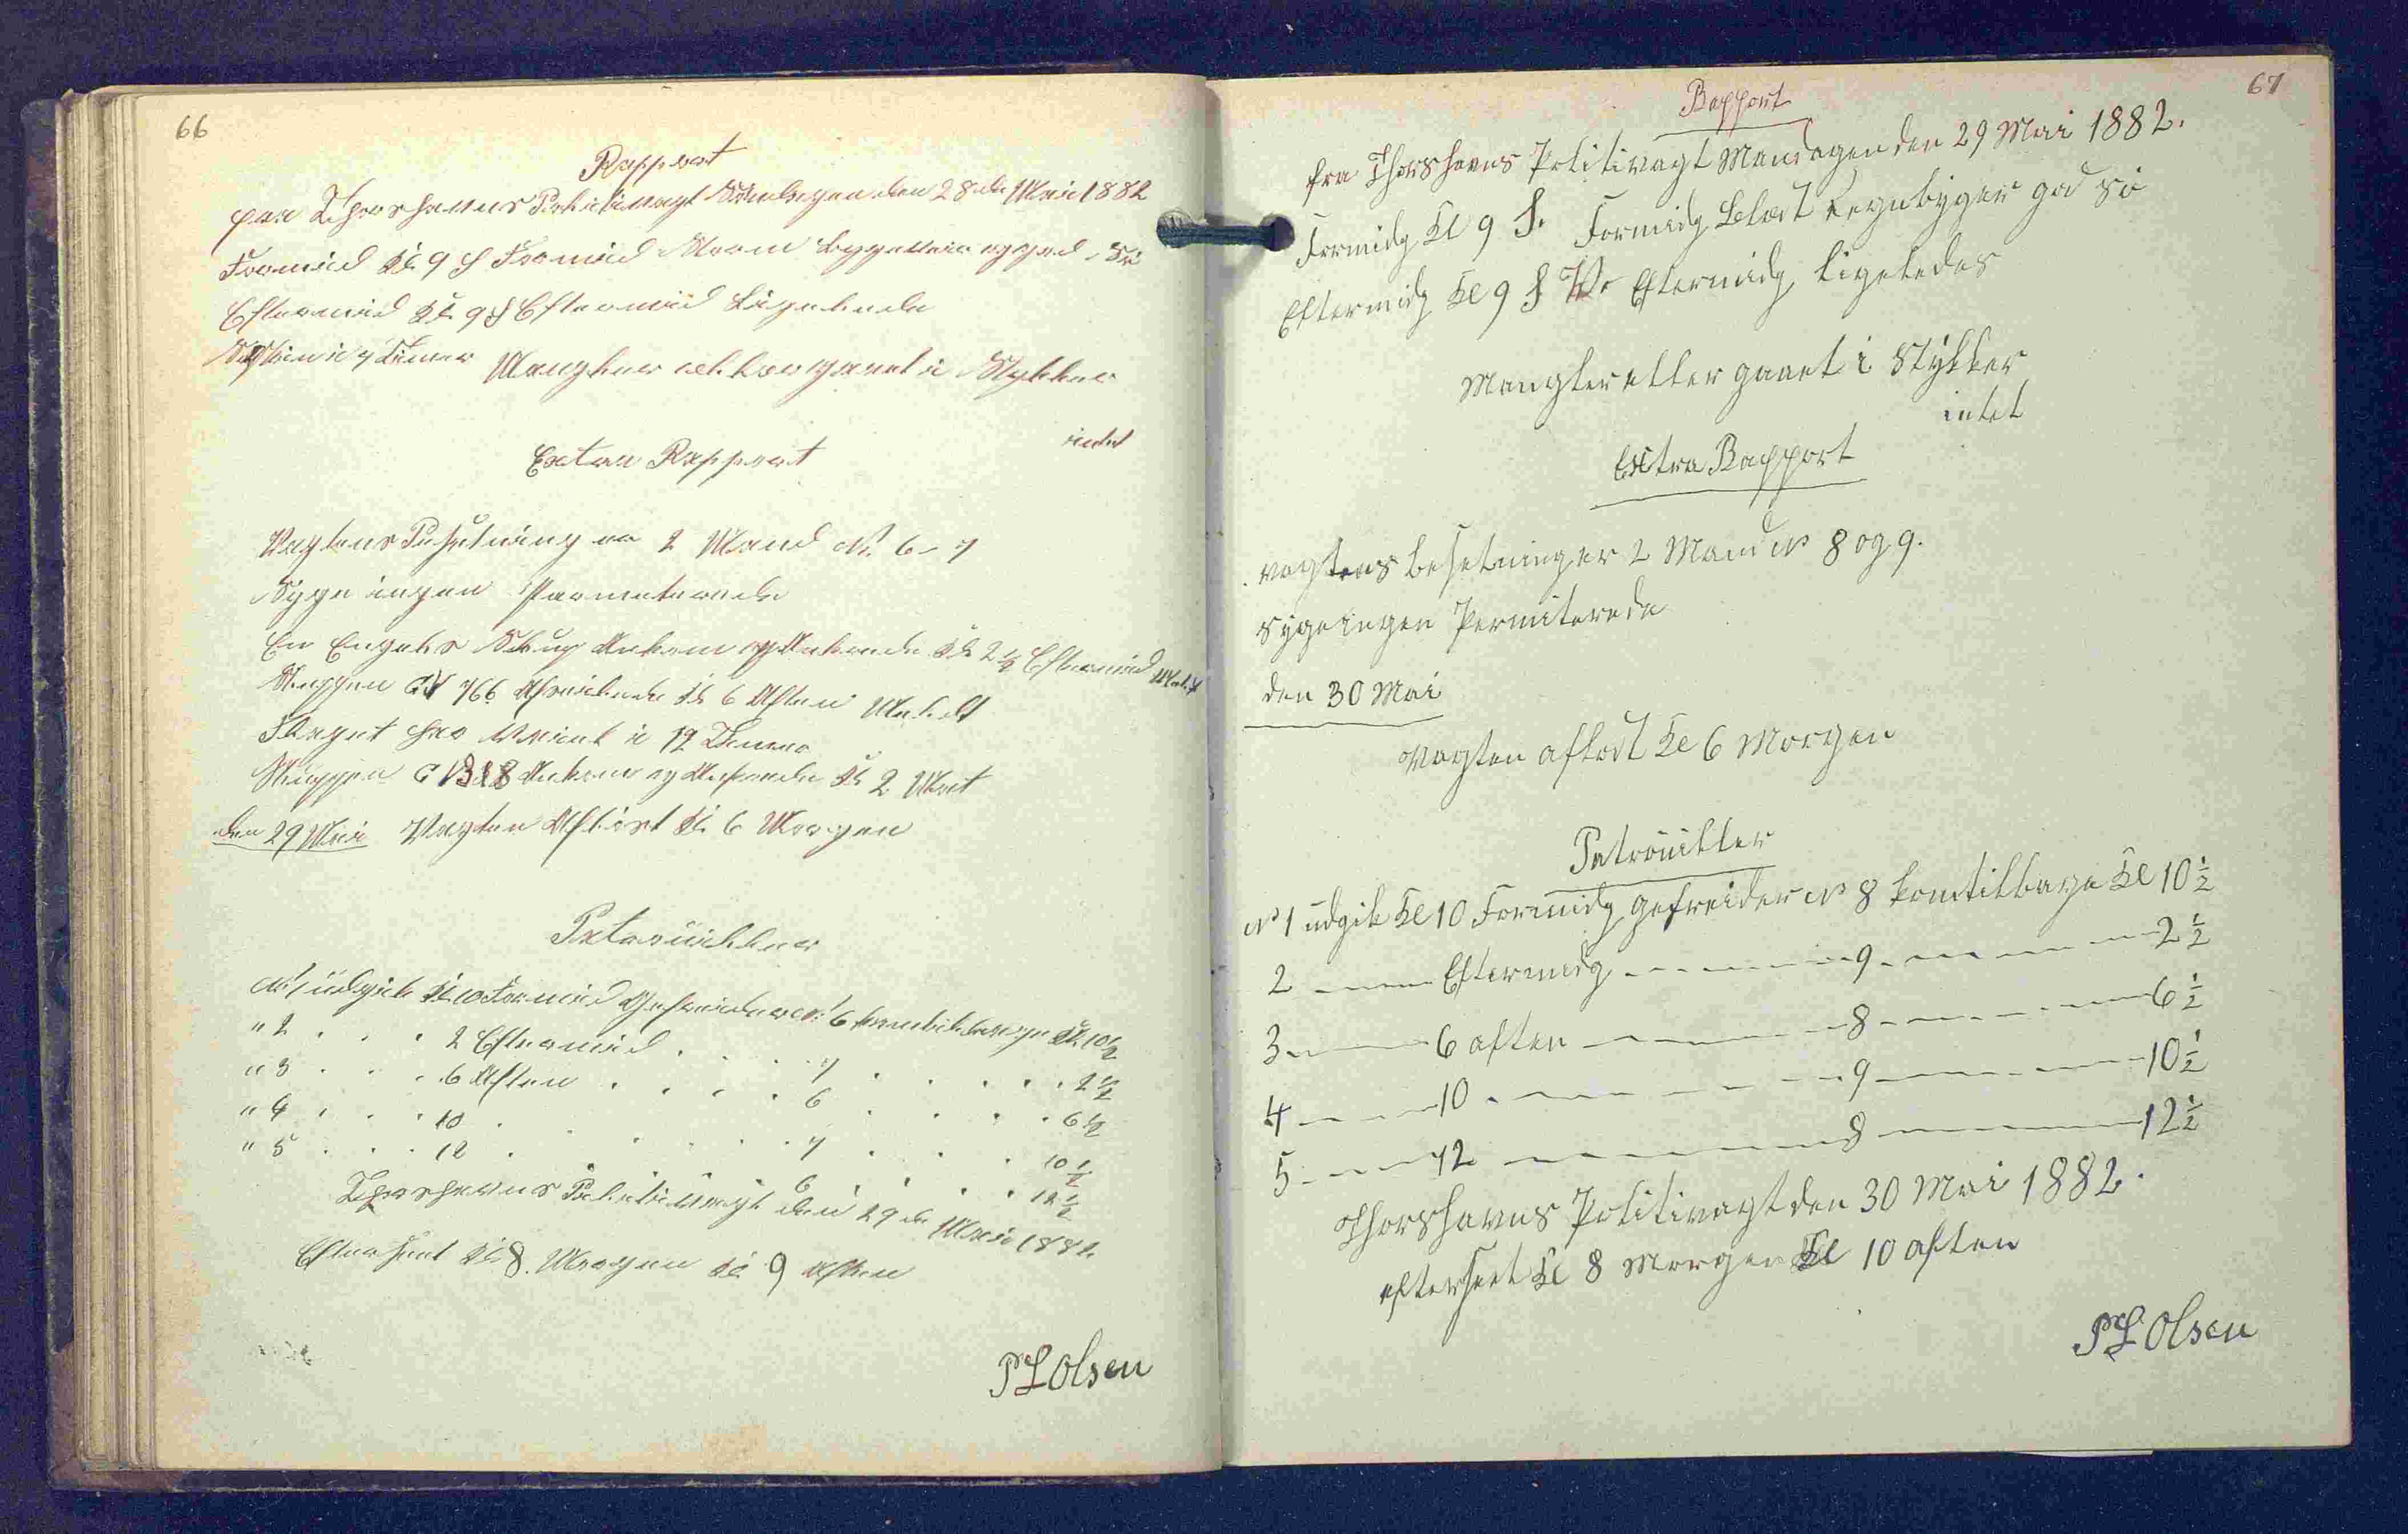 66
Rapport
fra Thorshavns Politivagt Søndagen den 28de Mai 1882
Formid Kl 9 f Formid Storm byguveir og god Sü
Eftermid Kl 9 f Eftermid Ligeledes
Solskin i 7 Timer Mangler eller gaaet i Stykker
intet
Extra Rapport
Vagtens Besetning er 2 Mand Nr. 6 - 7
Syge ingen Permeterede
En Engelsk Slup Ankom og Ankrede Kl 2 1/2 Eftermid
Sluppen 766 Afseilede Kl 6 Aften
Flaget har Veiet i 12 Timer
Sluppen Ankom og Ankrede Kl 2 Nat
den 29 Mai Vagten Afløst Kl 6 Morgen
Patrouiller
Nr 1 üdgik Kl 10 Formid Gefreider Nr 6 kom tilbage Kl 10 1/2
" 2 . . . 2 Eftermid . . . 7 . . . . 2 1/2
" 3 . . . 6 Aften . . . . 6 . . . . 6 1/2
" 4 . . . 10 . . . . . 7 . . . 10 1/2
" 5 . . . 12 . . . . . 6 . . . 12 1/2
Thorshavns Politivagt den 29de Mai 1882.
Efterseet Kl 8. Morgen Kl 9 Aften
P L Olsen
67
Rapport
fra Thorshavns Politivagt Mandagen den 29 Mai 1882.
Formidg Kl 9 f. Formidg Blæst regnbyger god Sü
Eftermidg Kl 9 f Eftermidg ligeledes
Mangler eller gaaet i Stÿkker
intet
Extra Rapport
vagtens besetning er 2 Mand No 8 og 9.
Syge ingen Permiterede
den 30 Mai
Vagten afløst Kl 6 Morgen
Patrouiller
No 1 udgik Kl 10 Formidg gefreider No 8 kom tilbage Kl 10 1/2
2 ---- Eftermidg ------ 9 ------ 2 1/2
3 ---- 6 aften ------ 8 ------ 6 1/2
4 ---- 10 ------ 9 ------ 10 1/2
5 ---- 12 ------ 8 ------ 12 1/2
Thorshavns Politivagt den 30 Mai 1882.
efterseet Kl 8 Morgen Kl 10 aften
P L Olsen